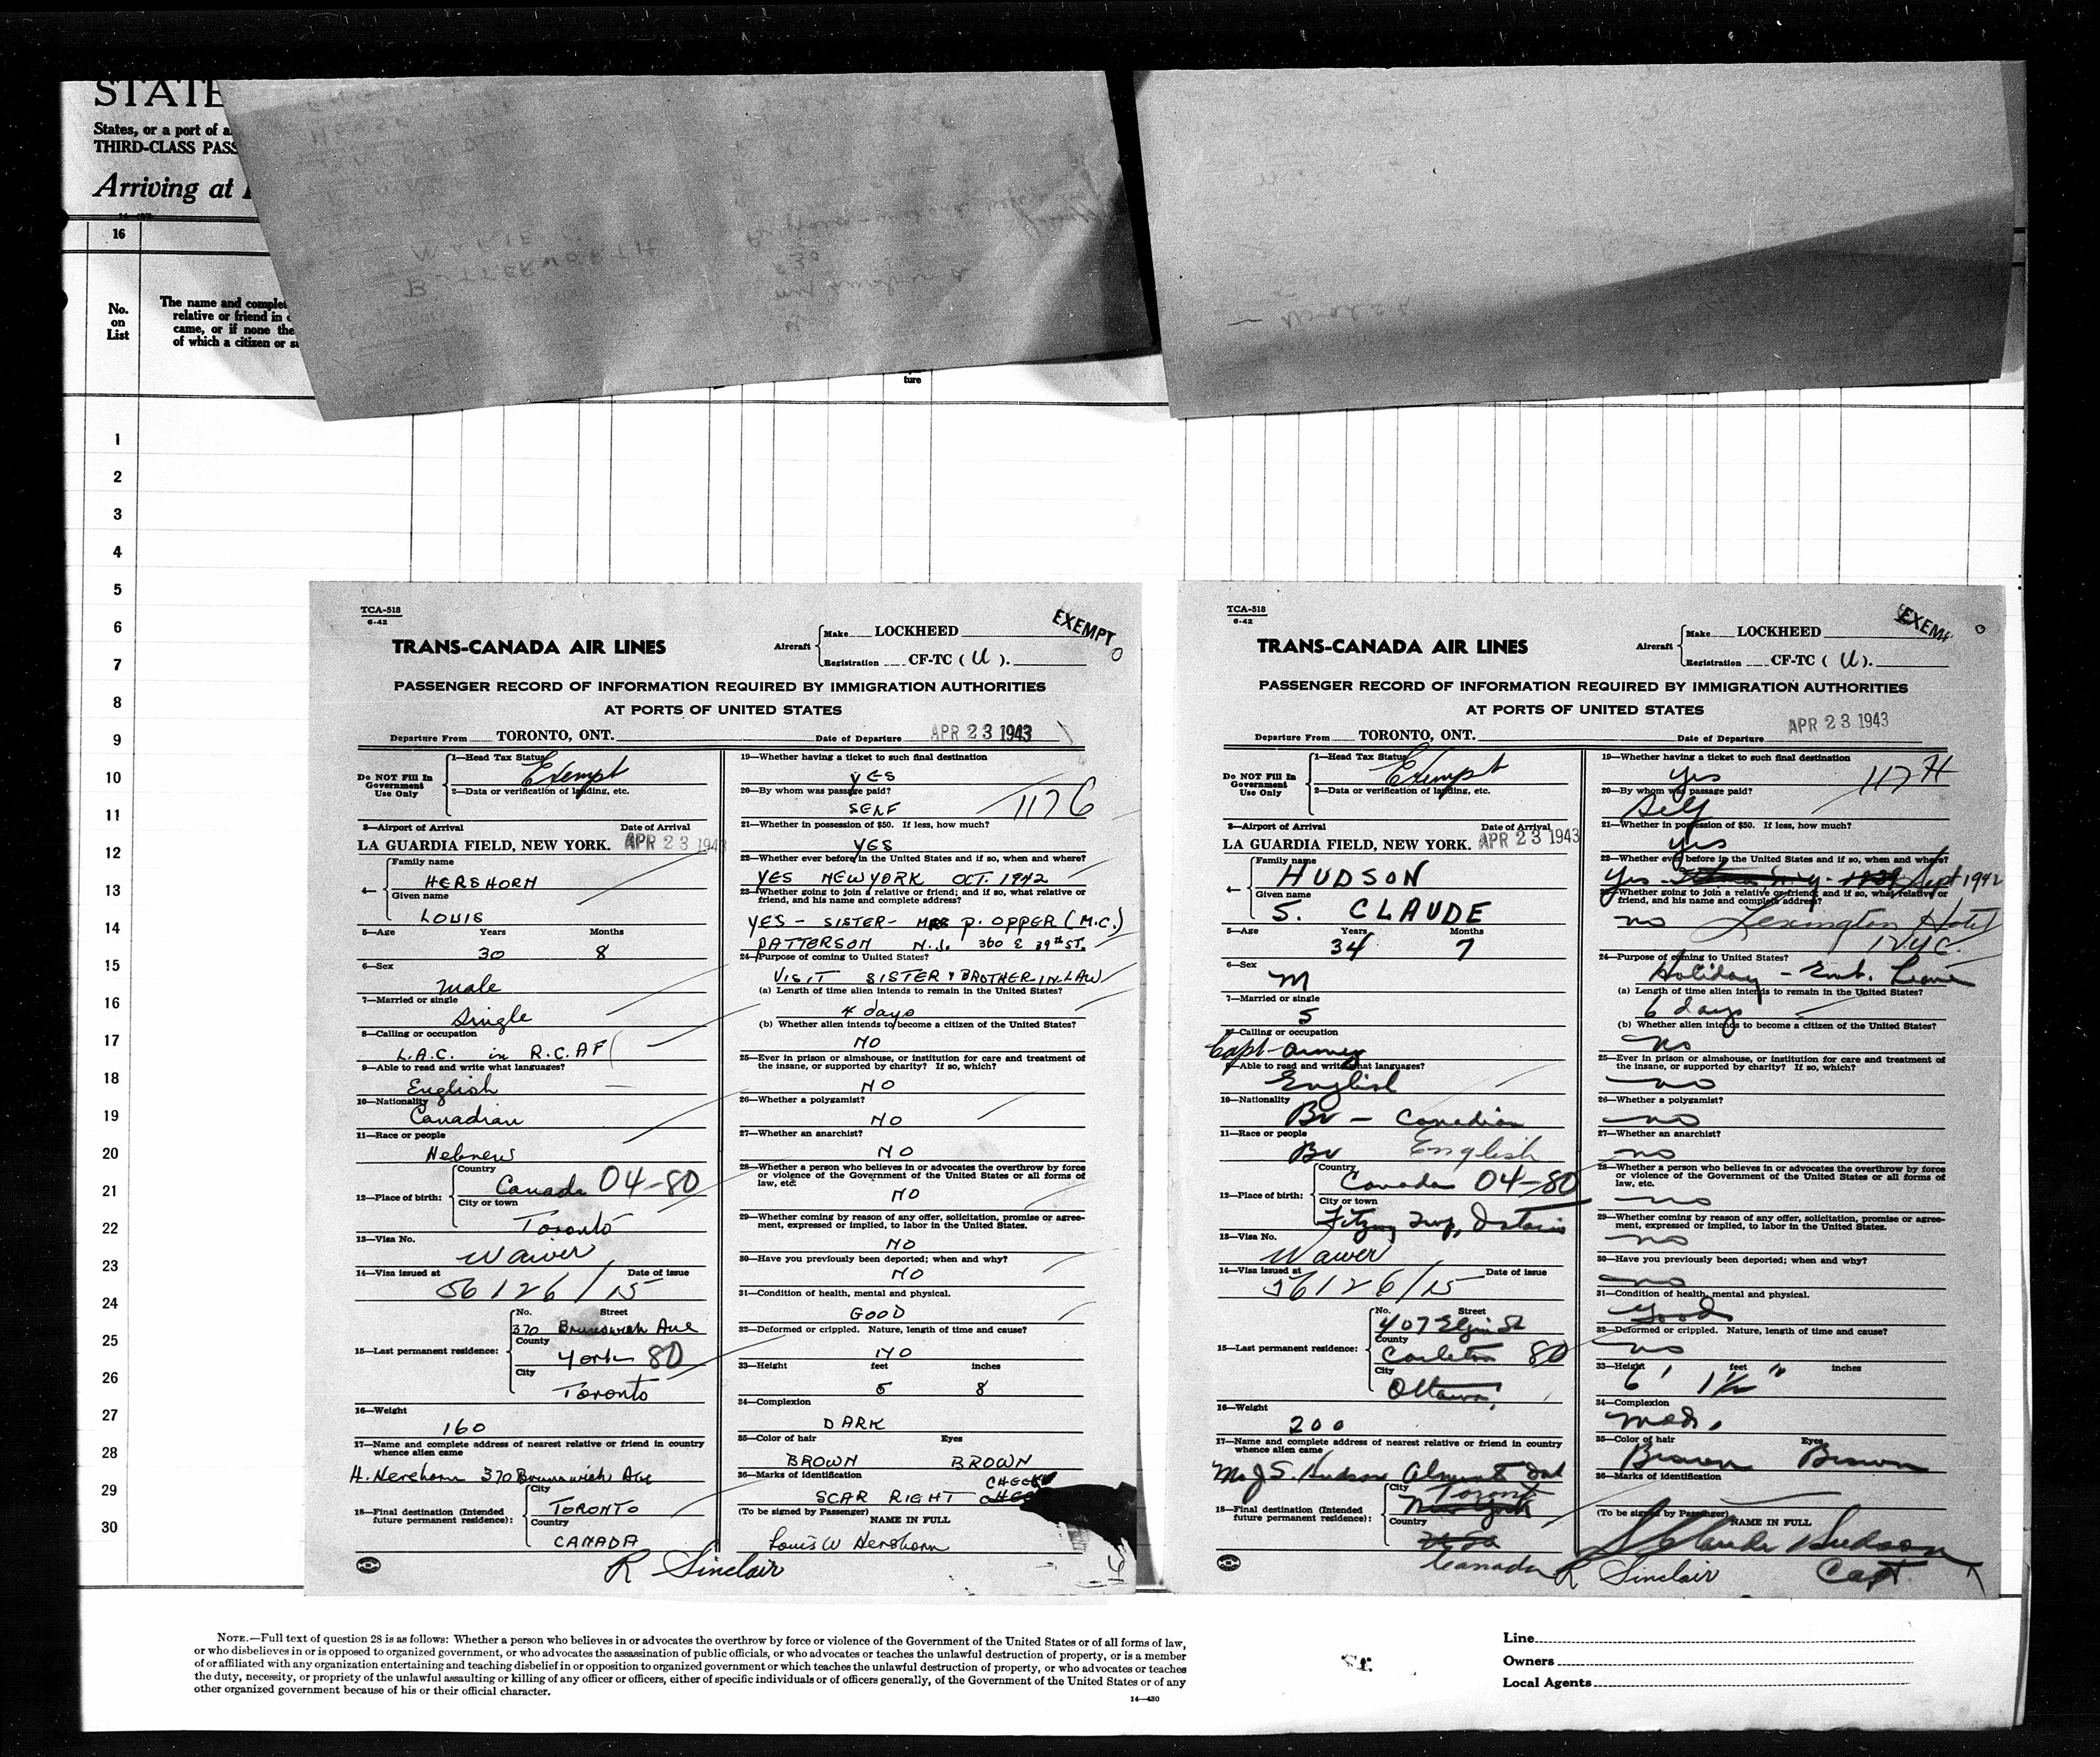 STATE
States, or a port of a
THIRD-CLASS PASS
Arriving at
16
No.
on
List
The name and complet
relative or friend in
came, or if none the
of which a citizen or su
ture
1
2
3
4
5
6
7
8
9
10
11
12
13
14
15
16
17
18
19
20
21
22
23
24
25
26
27
28
29
30
TCA-518
6-42
EXEMPT
TRANS-CANADA AIR LINES
Aircraft
Make LOCKHEED
Registration CF-TC ( U ).
PASSENGER RECORD OF INFORMATION REQUIRED BY IMMIGRATION AUTHORITIES
AT PORTS OF UNITED STATES
Departure From TORONTO, ONT. Date of Departure APR 23 1943
Do NOT Fill In
Government
Use Only
1—Head Tax Status
Exempt
2—Data or verification of landing, etc.
3—Airport of Arrival Date of Arrival
LA GUARDIA FIELD, NEW YORK. APR 23 1943
4—
Family name
HERSHORN
Given name
LOUIS
5—Age Years Months
30 8
6—Sex
Male
7—Married or single
Single
8—Calling or occupation
L.A.C. in R.C.AF
9—Able to read and write what languages?
English
10—Nationality
Canadian
11—Race or people
Hebrew
12—Place of birth:
Country
Canada 04-80
City or town
Toronto
13—Visa No.
Waiver
14—Visa issued at Date of issue
56126/15
15—Last permanent residence:
No. Street
370 Brunswick Ave
County
York 80
City
Toronto
16—Weight
160
17—Name and complete address of nearest relative or friend in country
whence alien came
H. Hershorn 370 Brunswick Ave
18—Final destination (Intended
future permanent residence):
City
TORONTO
Country
CANADA
19—Whether having a ticket to such final destination
YES
20—By whom was passage paid?
SELF 117G
21—Whether in possession of $50. If less, how much?
YES
22—Whether ever before in the United States and if so, when and where?
YES NEW YORK OCT. 1942
23—Whether going to join a relative or friend; and if so, what relative or
friend, and his name and complete address?
YES - SISTER - MRS P. OPPER (M.C.)
PATTERSON N.J. 360 E 39th ST.
24—Purpose of coming to United States?
VISIT SISTER & BROTHER IN LAW
(a) Length of time alien intends to remain in the United States?
4 days
(b) Whether alien intends to become a citizen of the United States?
NO
25—Ever in prison or almshouse, or institution for care and treatment of
the insane, or supported by charity? If so, which?
NO
26—Whether a polygamist?
NO
27—Whether an anarchist?
NO
28—Whether a person who believes in or advocates the overthrow by force
or violence of the Government of the United States or all forms of
law, etc.
NO
29—Whether coming by reason of any offer, solicitation, promise or agree-
ment, expressed or implied, to labor in the United States.
NO
30—Have you previously been deported; when and why?
NO
31—Condition of health, mental and physical.
GOOD
32—Deformed or crippled. Nature, length of time and cause?
NO
33—Height feet inches
5 8
34—Complexion
DARK
35—Color of hair Eyes
BROWN BROWN
36—Marks of identification
SCAR RIGHT CHEEK
(To be signed by Passenger)
NAME IN FULL
Louis W Hershorn
R Sinclair
TCA-518
6-42
EXEM
TRANS-CANADA AIR LINES
Aircraft
Make LOCKHEED
Registration CF-TC ( U ).
PASSENGER RECORD OF INFORMATION REQUIRED BY IMMIGRATION AUTHORITIES
AT PORTS OF UNITED STATES
Departure From TORONTO, ONT. Date of Departure APR 23 1943
Do NOT Fill In
Government
Use Only
1—Head Tax Status
Exempt
2—Data or verification of landing, etc.
3—Airport of Arrival Date of Arrival
LA GUARDIA FIELD, NEW YORK. APR 23 1943
4—
Family name
HUDSON
Given name
S. CLAUDE
5—Age Years Months
34 7
6—Sex
M
7—Married or single
S
8—Calling or occupation
Capt - Army
9—Able to read and write what languages?
English
10—Nationality
Br - Canadian
11—Race or people
Br English
12—Place of birth:
Country
Canada 04-80
City or town
Fitzroy Twp, Ontario
13—Visa No.
Waiver
14—Visa issued at Date of issue
56126/15
15—Last permanent residence:
No. Street
407 Elgin St
County
Carleton 80
City
Ottawa
16—Weight
200
17—Name and complete address of nearest relative or friend in country
whence alien came
Mr J S. Hudson Almonte Ont
18—Final destination (Intended
future permanent residence):
City
Toronto
New York
Country
Canada
19—Whether having a ticket to such final destination
Yes 117H
20—By whom was passage paid?
Self
21—Whether in possession of $50. If less, how much?
Yes
22—Whether ever before in the United States and if so, when and where?
Yes - Sept 1942
23—Whether going to join a relative or friend; and if so, what relative or
friend, and his name and complete address?
no Lexington Hotel
NYC.
24—Purpose of coming to United States?
Holiday - Emb. Leave
(a) Length of time alien intends to remain in the United States?
6 days
(b) Whether alien intends to become a citizen of the United States?
No
25—Ever in prison or almshouse, or institution for care and treatment of
the insane, or supported by charity? If so, which?
no
26—Whether a polygamist?
no
27—Whether an anarchist?
no
28—Whether a person who believes in or advocates the overthrow by force
or violence of the Government of the United States or all forms of
law, etc.
no
29—Whether coming by reason of any offer, solicitation, promise or agree-
ment, expressed or implied, to labor in the United States.
no
30—Have you previously been deported; when and why?
no
31—Condition of health, mental and physical.
Good
32—Deformed or crippled. Nature, length of time and cause?
no
33—Height feet inches
6' 1 1/2"
34—Complexion
Med.
35—Color of hair Eyes
Brown Brown
36—Marks of identification
(To be signed by Passenger)
NAME IN FULL
S Claude Hudson
Capt.
R Sinclair
NOTE.—Full text of question 28 is as follows: Whether a person who believes in or advocates the overthrow by force or violence of the Government of the United States or of all forms of law,
or who disbelieves in or is opposed to organized government, or who advocates the assassination of public officials, or who advocates or teaches the unlawful destruction of property, or is a member
of or affiliated with any organization entertaining and teaching disbelief in or opposition to organized government or which teaches the unlawful destruction of property, or who advocates or teaches
the duty, necessity, or propriety of the unlawful assaulting or killing of any officer or officers, either of specific individuals or of officers generally, of the Government of the United States or of any
other organized government because of his or their official character.
14—430
Line
Owners
Local Agents